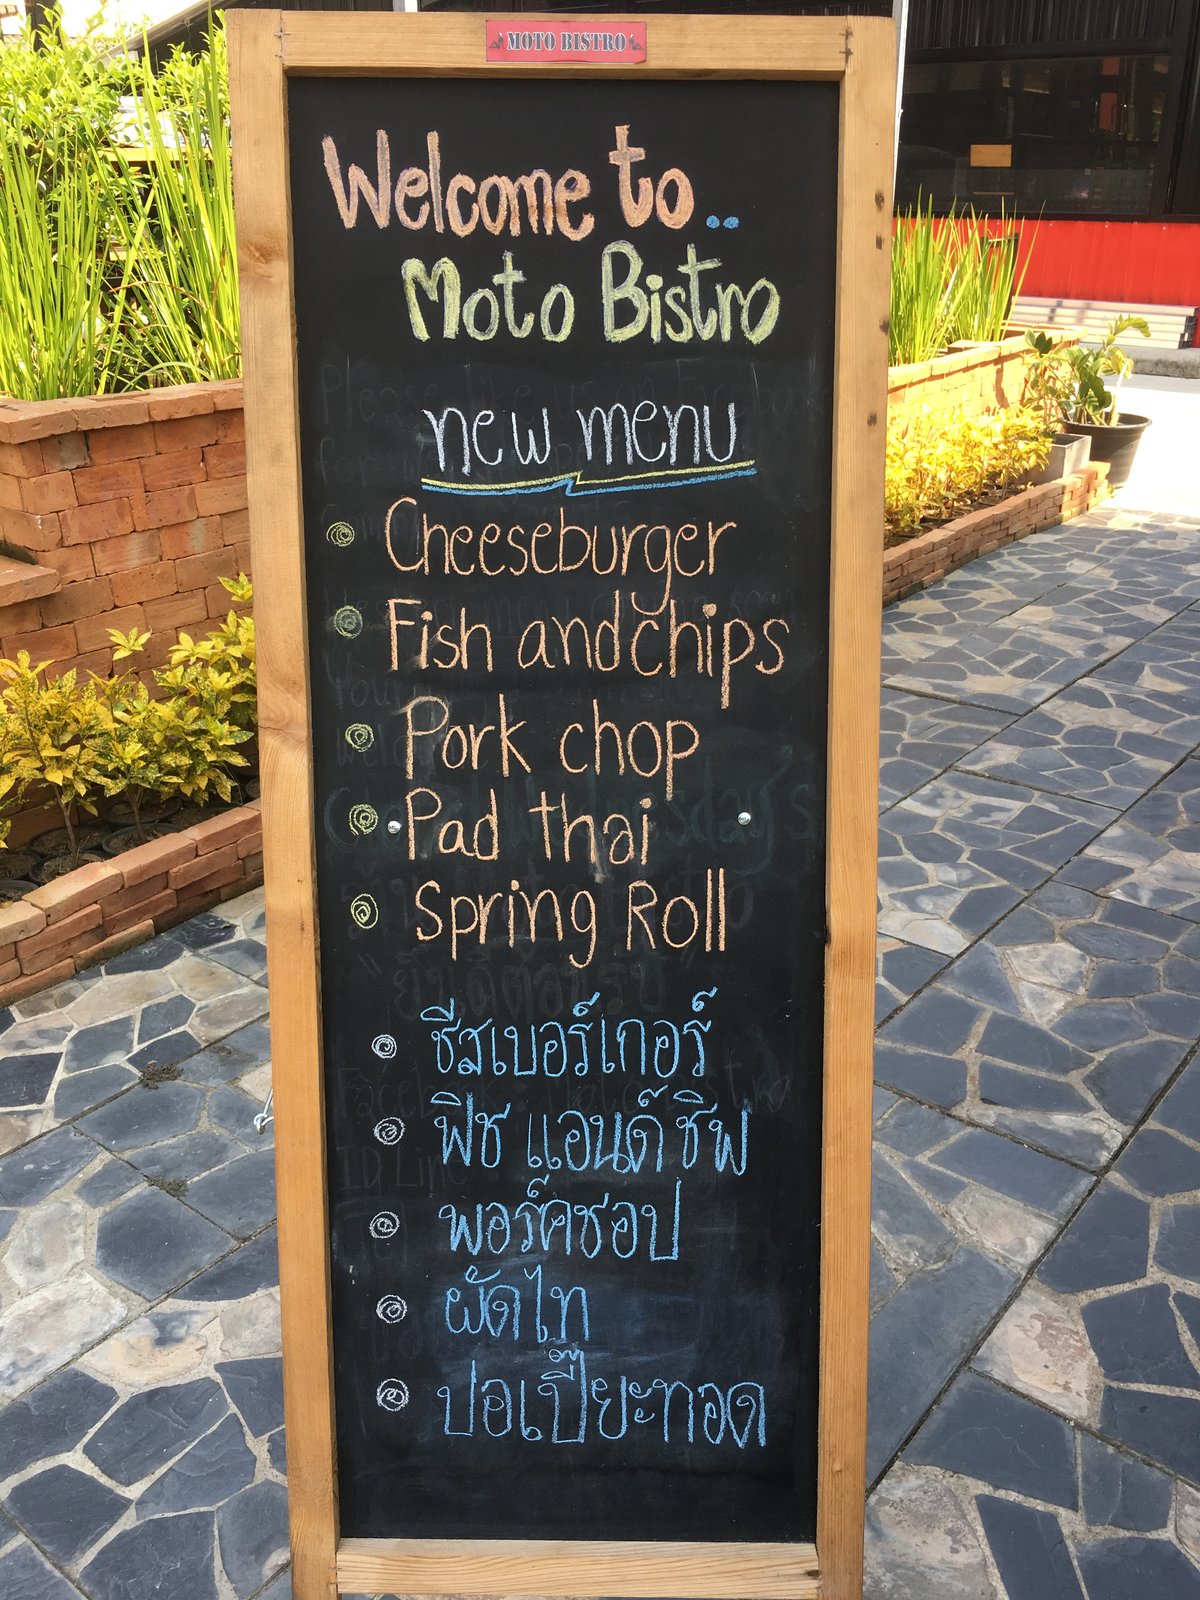 MOTO BISTRO
Welcome to..
Moto Bistro
new menu
Cheeseburger
Fish and chips
Pork chop
Pad thai
Spring Roll
ชีสเบอร์เกอร์
ฟิช แอนด์ ชิพ
พอร์คชอป
ผัดไท
ปอเปี๊ยะทอด